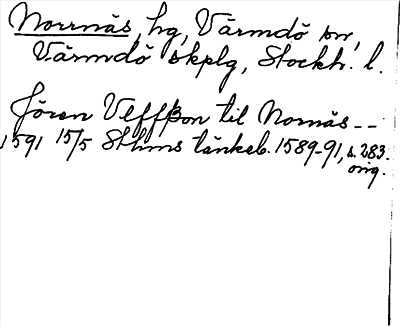 Norrnäs, hg, Värmdö sn,
Värmdö skplg, Stockh. l.
Jören Vlffßon til Nornäs --
1591 15/5 Sthms tänkeb. 1589-91, s. 283.
orig.